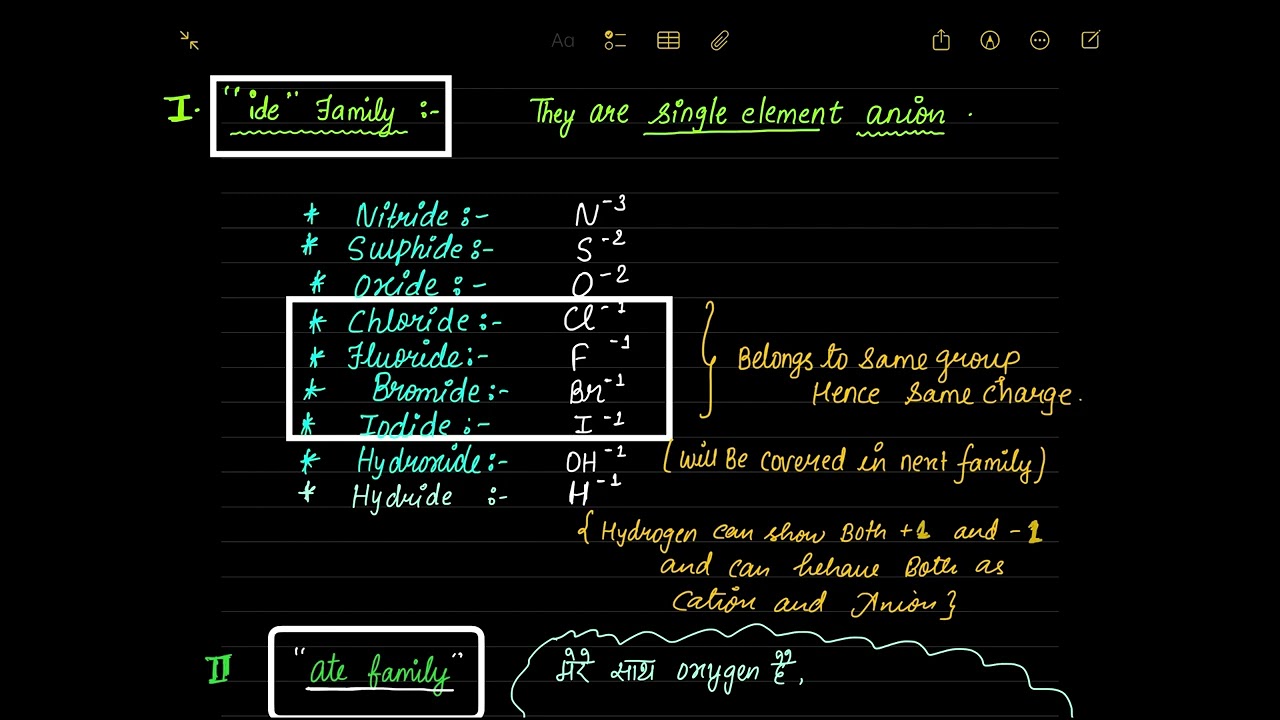 Aa
I. "ide" Family :- They are single element anion .
* Nitride :- N⁻³
* Sulphide :- S⁻²
* Oxide :- O⁻²
* Chloride :- Cl⁻¹
* Fluoride :- F⁻¹
* Bromide :- Br⁻¹
* Iodide :- I⁻¹
} Belongs to same group
Hence same charge.
* Hydroxide :- OH⁻¹ (will Be covered in next family)
* Hydride :- H⁻¹
{ Hydrogen can show Both +1 and -1
and can behave Both as
Cation and Anion }
II "ate family" मेरे साथ oxygen है,